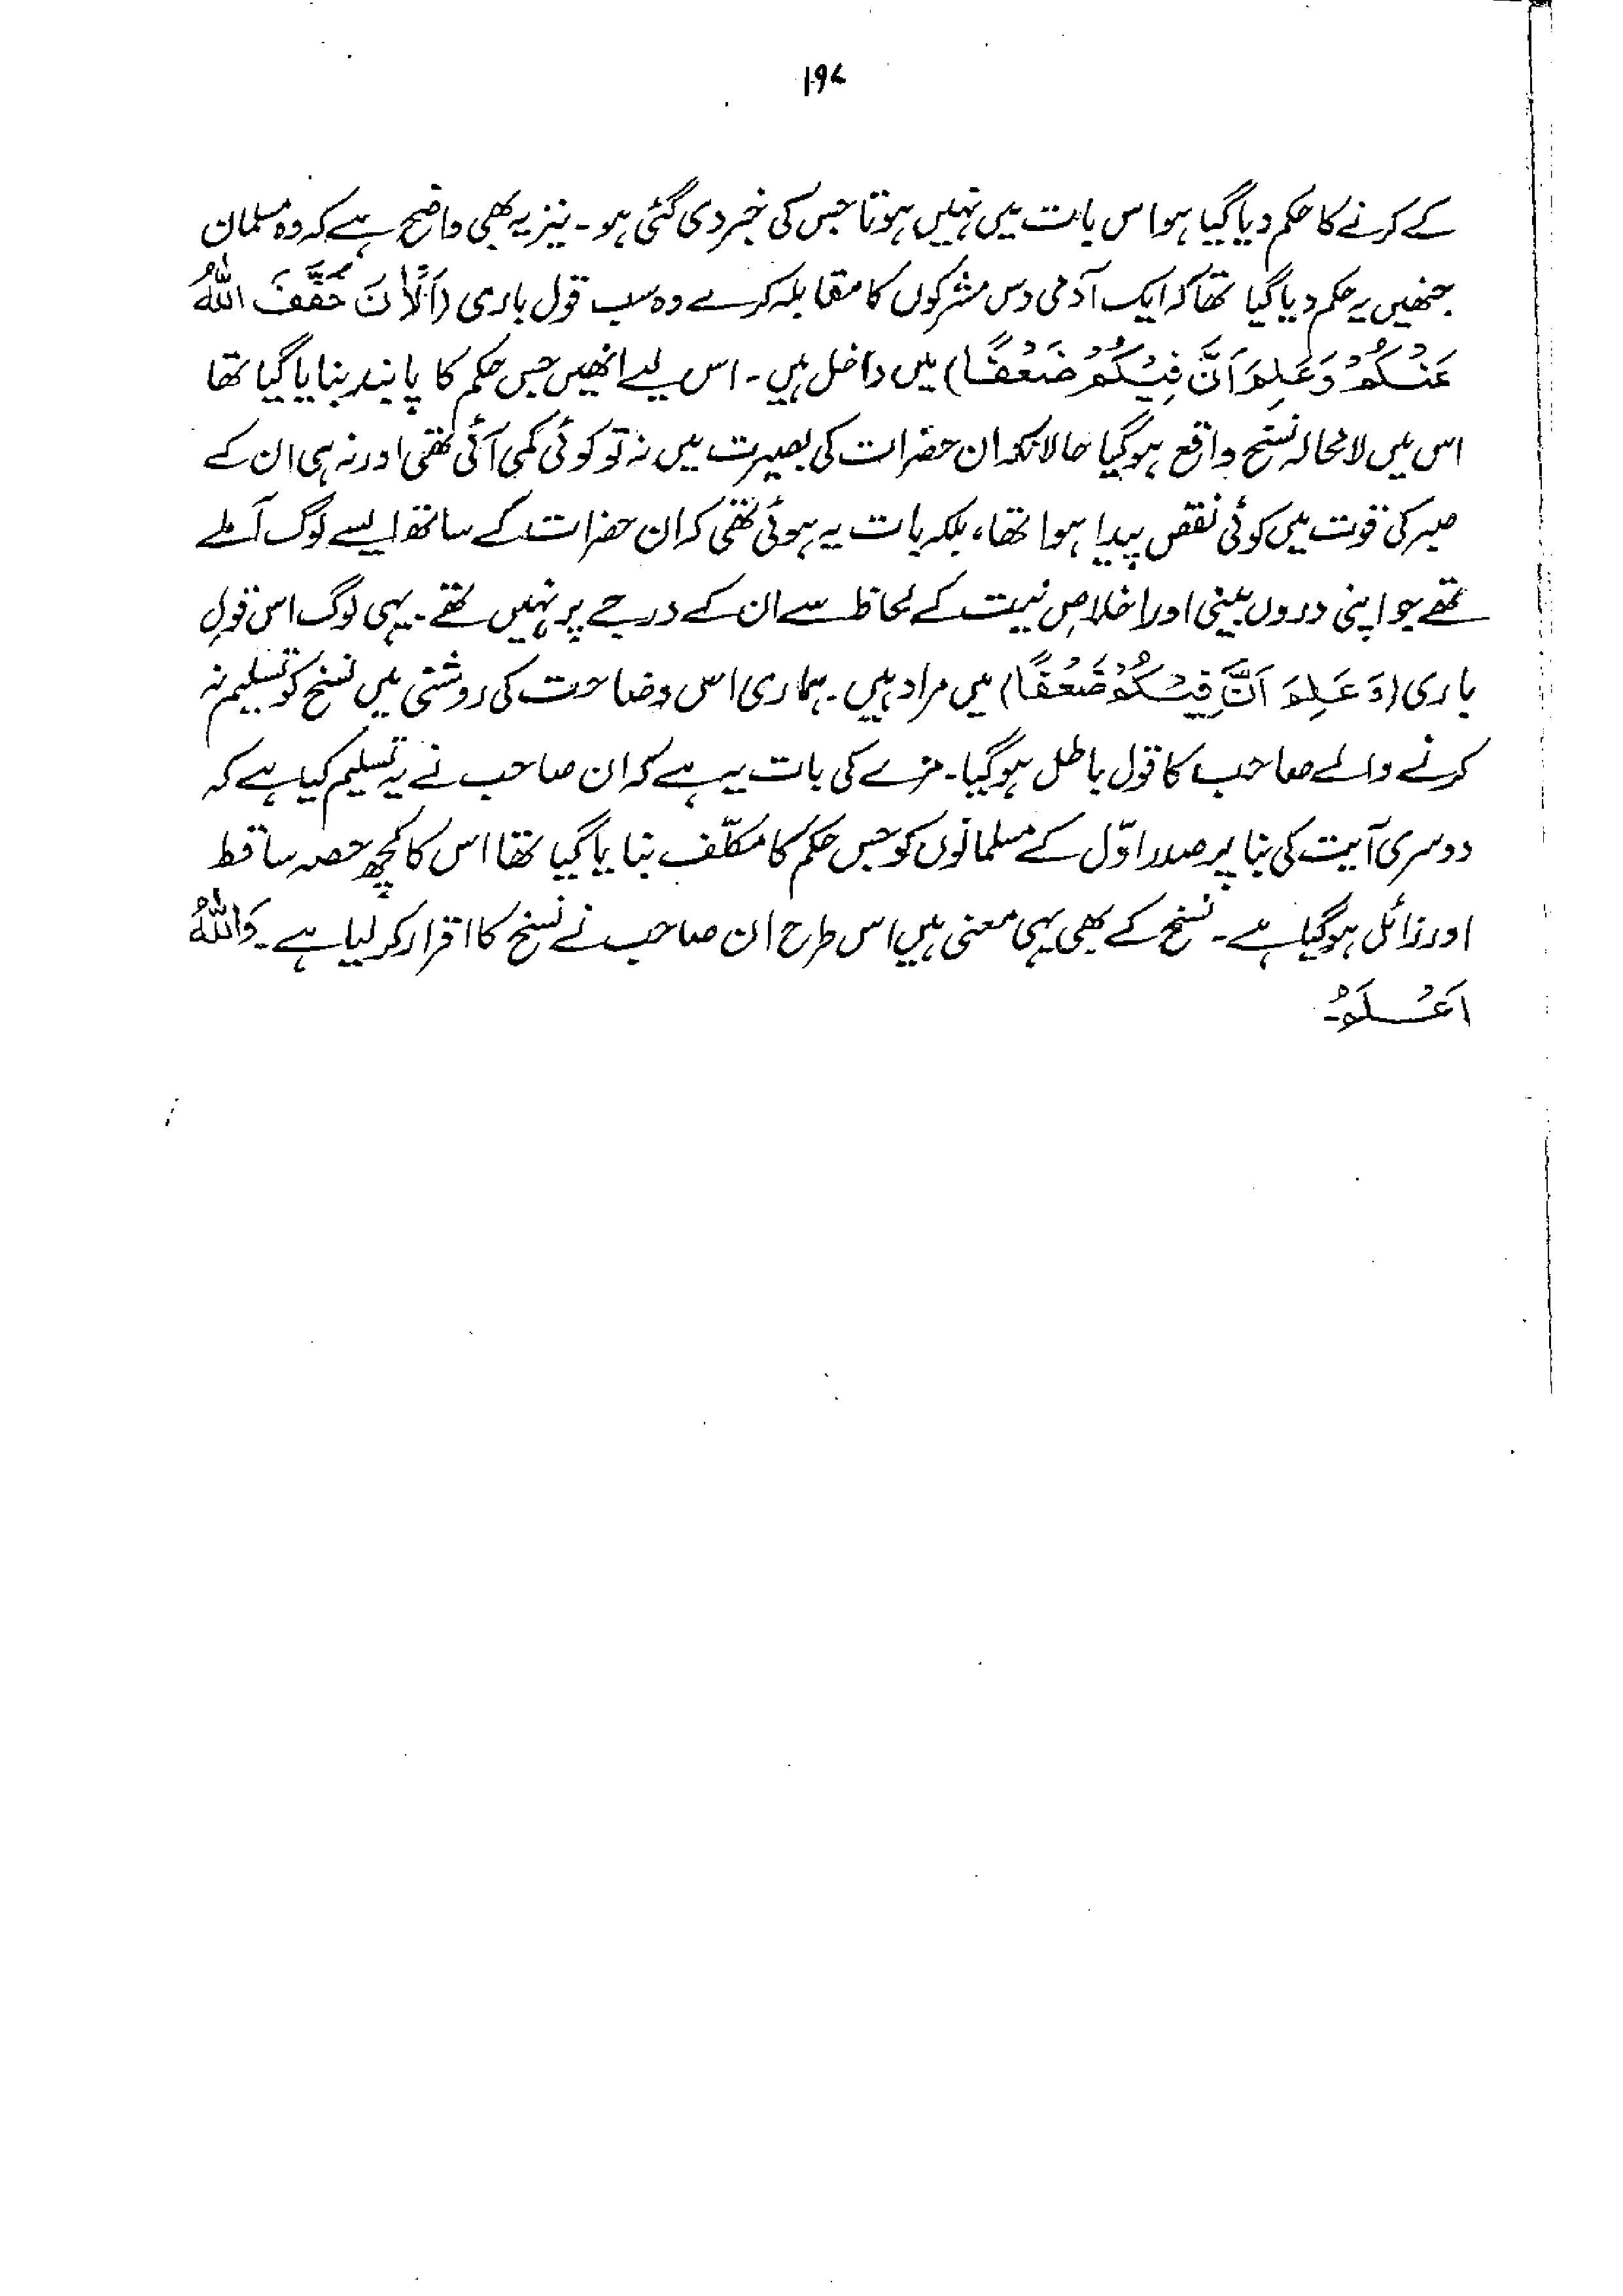 ۱۹۷
کے کرنے کا حکم دیا گیا ہو اس بات میں نہیں ہوتا جس کی خبر دی گئی ہو۔ نیز یہ بھی واضح ہے کہ وہ مسلمان
جنھیں یہ حکم دیا گیا تھا کہ ایک آدمی دس مشرکوں کا مقابلہ کرے وہ سب قول باری (اَلْاٰنَ خَفَّفَ اللّٰهُ
عَنْکُمْ وَعَلِمَ اَنَّ فِیْکُمْ ضَعْفًا) میں داخل ہیں۔ اس لیے انھیں جس حکم کا پابند بنایا گیا تھا
اس میں لامحالہ نسخ واقع ہو گیا حالانکہ ان حضرات کی بصیرت میں نہ تو کوئی کمی آئی تھی اور نہ ہی ان کے
صبر کی قوت میں کوئی نقص پیدا ہوا تھا، بلکہ بات یہ ہوئی تھی کہ ان حضرات کے ساتھ ایسے لوگ آملے
تھے جو اپنی دروں بینی اور اخلاصِ نیت کے لحاظ سے ان کے درجے پر نہیں تھے۔ یہی لوگ اس قولِ
باری (وَعَلِمَ اَنَّ فِیْکُمْ ضَعْفًا) میں مراد ہیں۔ ہماری اس وضاحت کی روشنی میں نسخ کو تسلیم نہ
کرنے والے صاحب کا قول باطل ہو گیا۔ مزے کی بات یہ ہے کہ ان صاحب نے یہ تسلیم کیا ہے کہ
دوسری آیت کی بنا پر صدر اوّل کے مسلمانوں کو جس حکم کا مکلّف بنایا گیا تھا اس کا کچھ حصہ ساقط
اور زائل ہو گیا ہے۔ نسخ کے بھی یہی معنی ہیں اس طرح ان صاحب نے نسخ کا اقرار کر لیا ہے۔ وَاللّٰهُ
اَعْلَمُ۔